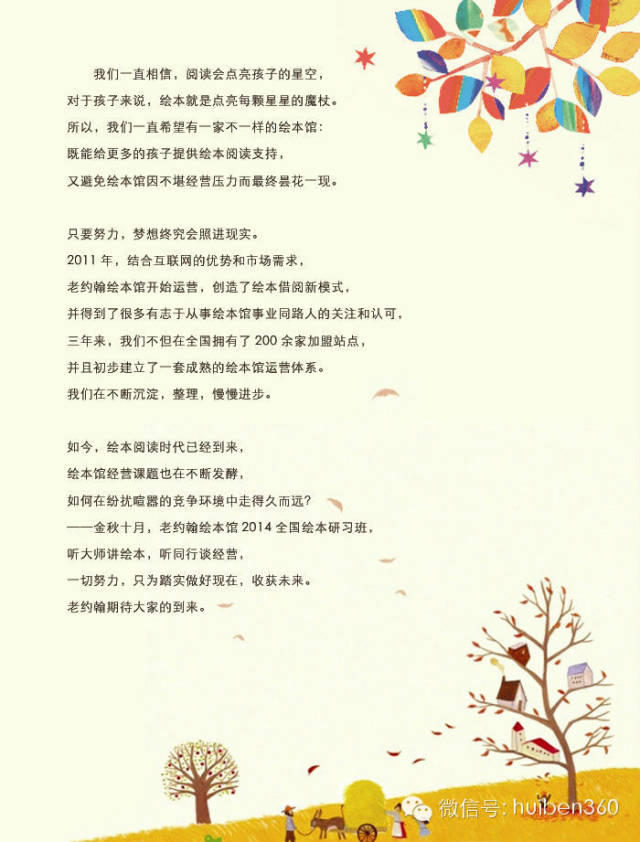 我们一直相信，阅读会点亮孩子的星空，
对于孩子来说，绘本就是点亮每颗星星的魔杖。
所以，我们一直希望有一家不一样的绘本馆：
既能给更多的孩子提供绘本阅读支持，
又避免绘本馆因不堪经营压力而最终昙花一现。
只要努力，梦想终究会照进现实。
2011 年，结合互联网的优势和市场需求，
老约翰绘本馆开始运营，创造了绘本借阅新模式，
并得到了很多有志于从事绘本馆事业同路人的关注和认可，
三年来，我们不但在全国拥有了 200 余家加盟站点，
并且初步建立了一套成熟的绘本馆运营体系。
我们在不断沉淀，整理，慢慢进步。
如今，绘本阅读时代已经到来，
绘本馆经营课题也在不断发酵，
如何在纷扰喧嚣的竞争环境中走得久而远？
——金秋十月，老约翰绘本馆 2014 全国绘本研习班，
听大师讲绘本，听同行谈经营，
一切努力，只为踏实做好现在，收获未来。
老约翰期待大家的到来。
微信号: huiben360